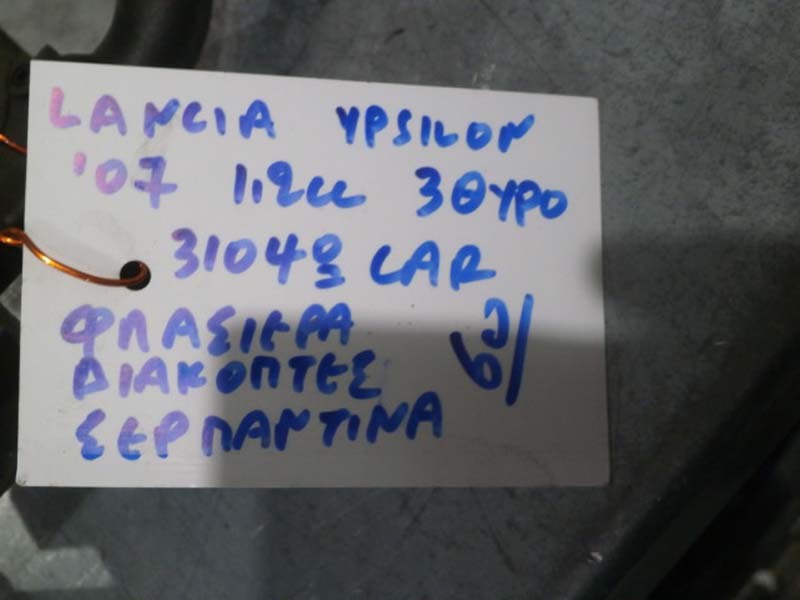 LANCIA YPSILON
'07 1.2cc 3ΘΥΡΟ
3104º CAR
ΦΠΑΣΙΕΡΑ
ΔΙΑΚΟΠΤΕΣ
ΣΕΡΠΑΝΤΙΝΑ